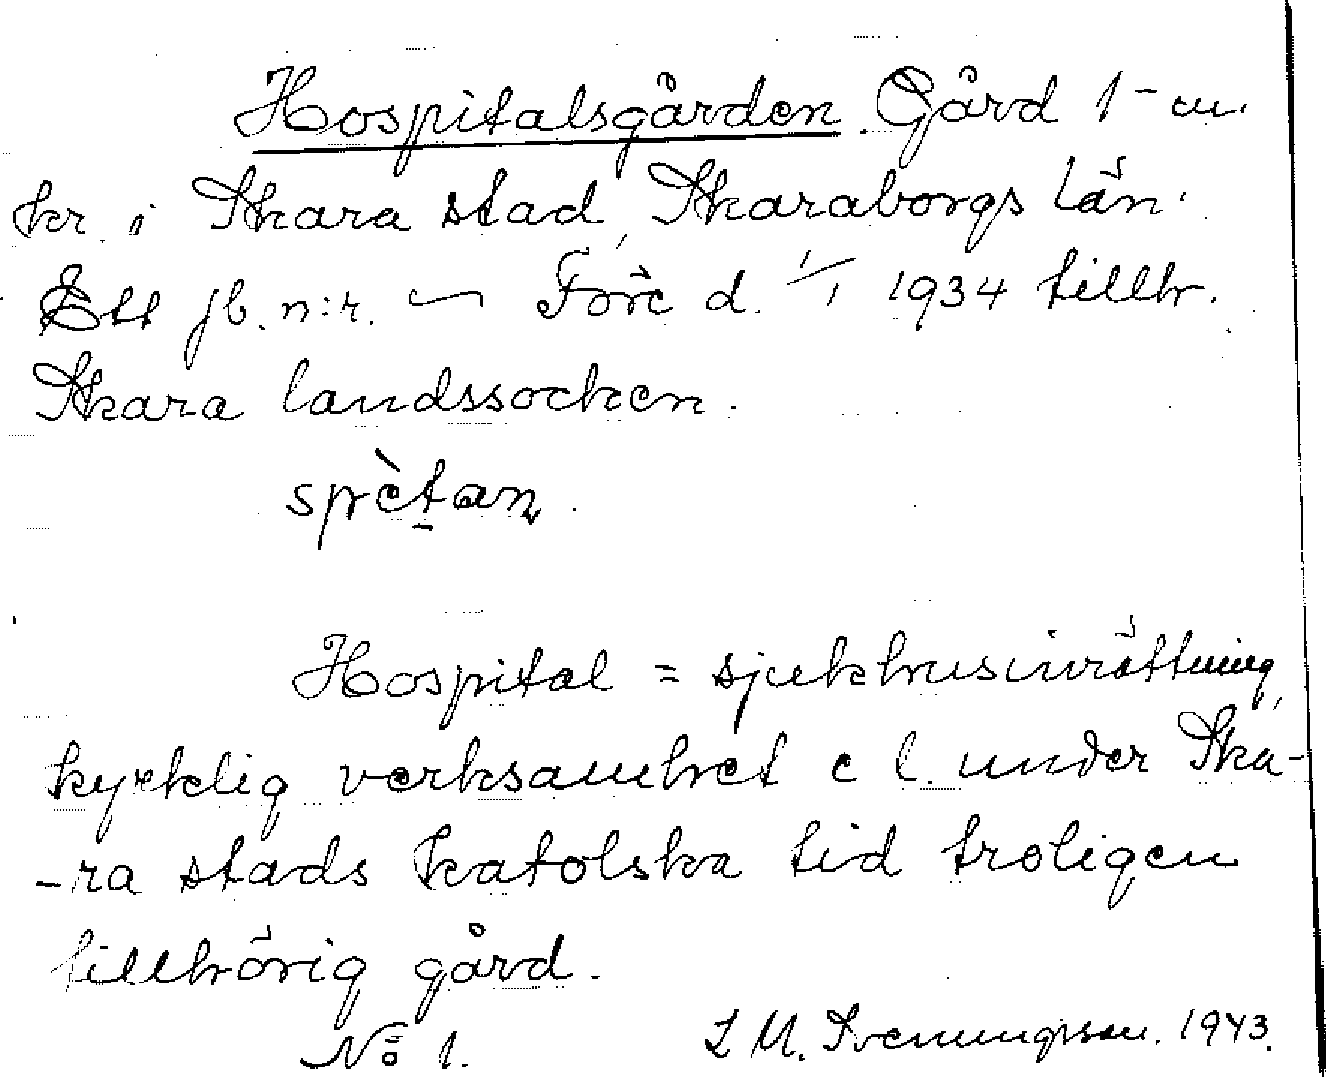 Hospitalsgården. Gård 1 - m.
kr. i Skara stad, Skaraborgs län.
Ett jb. n:r. — Före d. 1/1 1934 tillh.
Skara landssocken.
spètan
Hospital = sjukhusinrättning,
kyrklig verksamhet e l. under Ska-
-ra stads katolska tid troligen
tillhörig gård.
No 1. L M. Svenungsson. 1943.